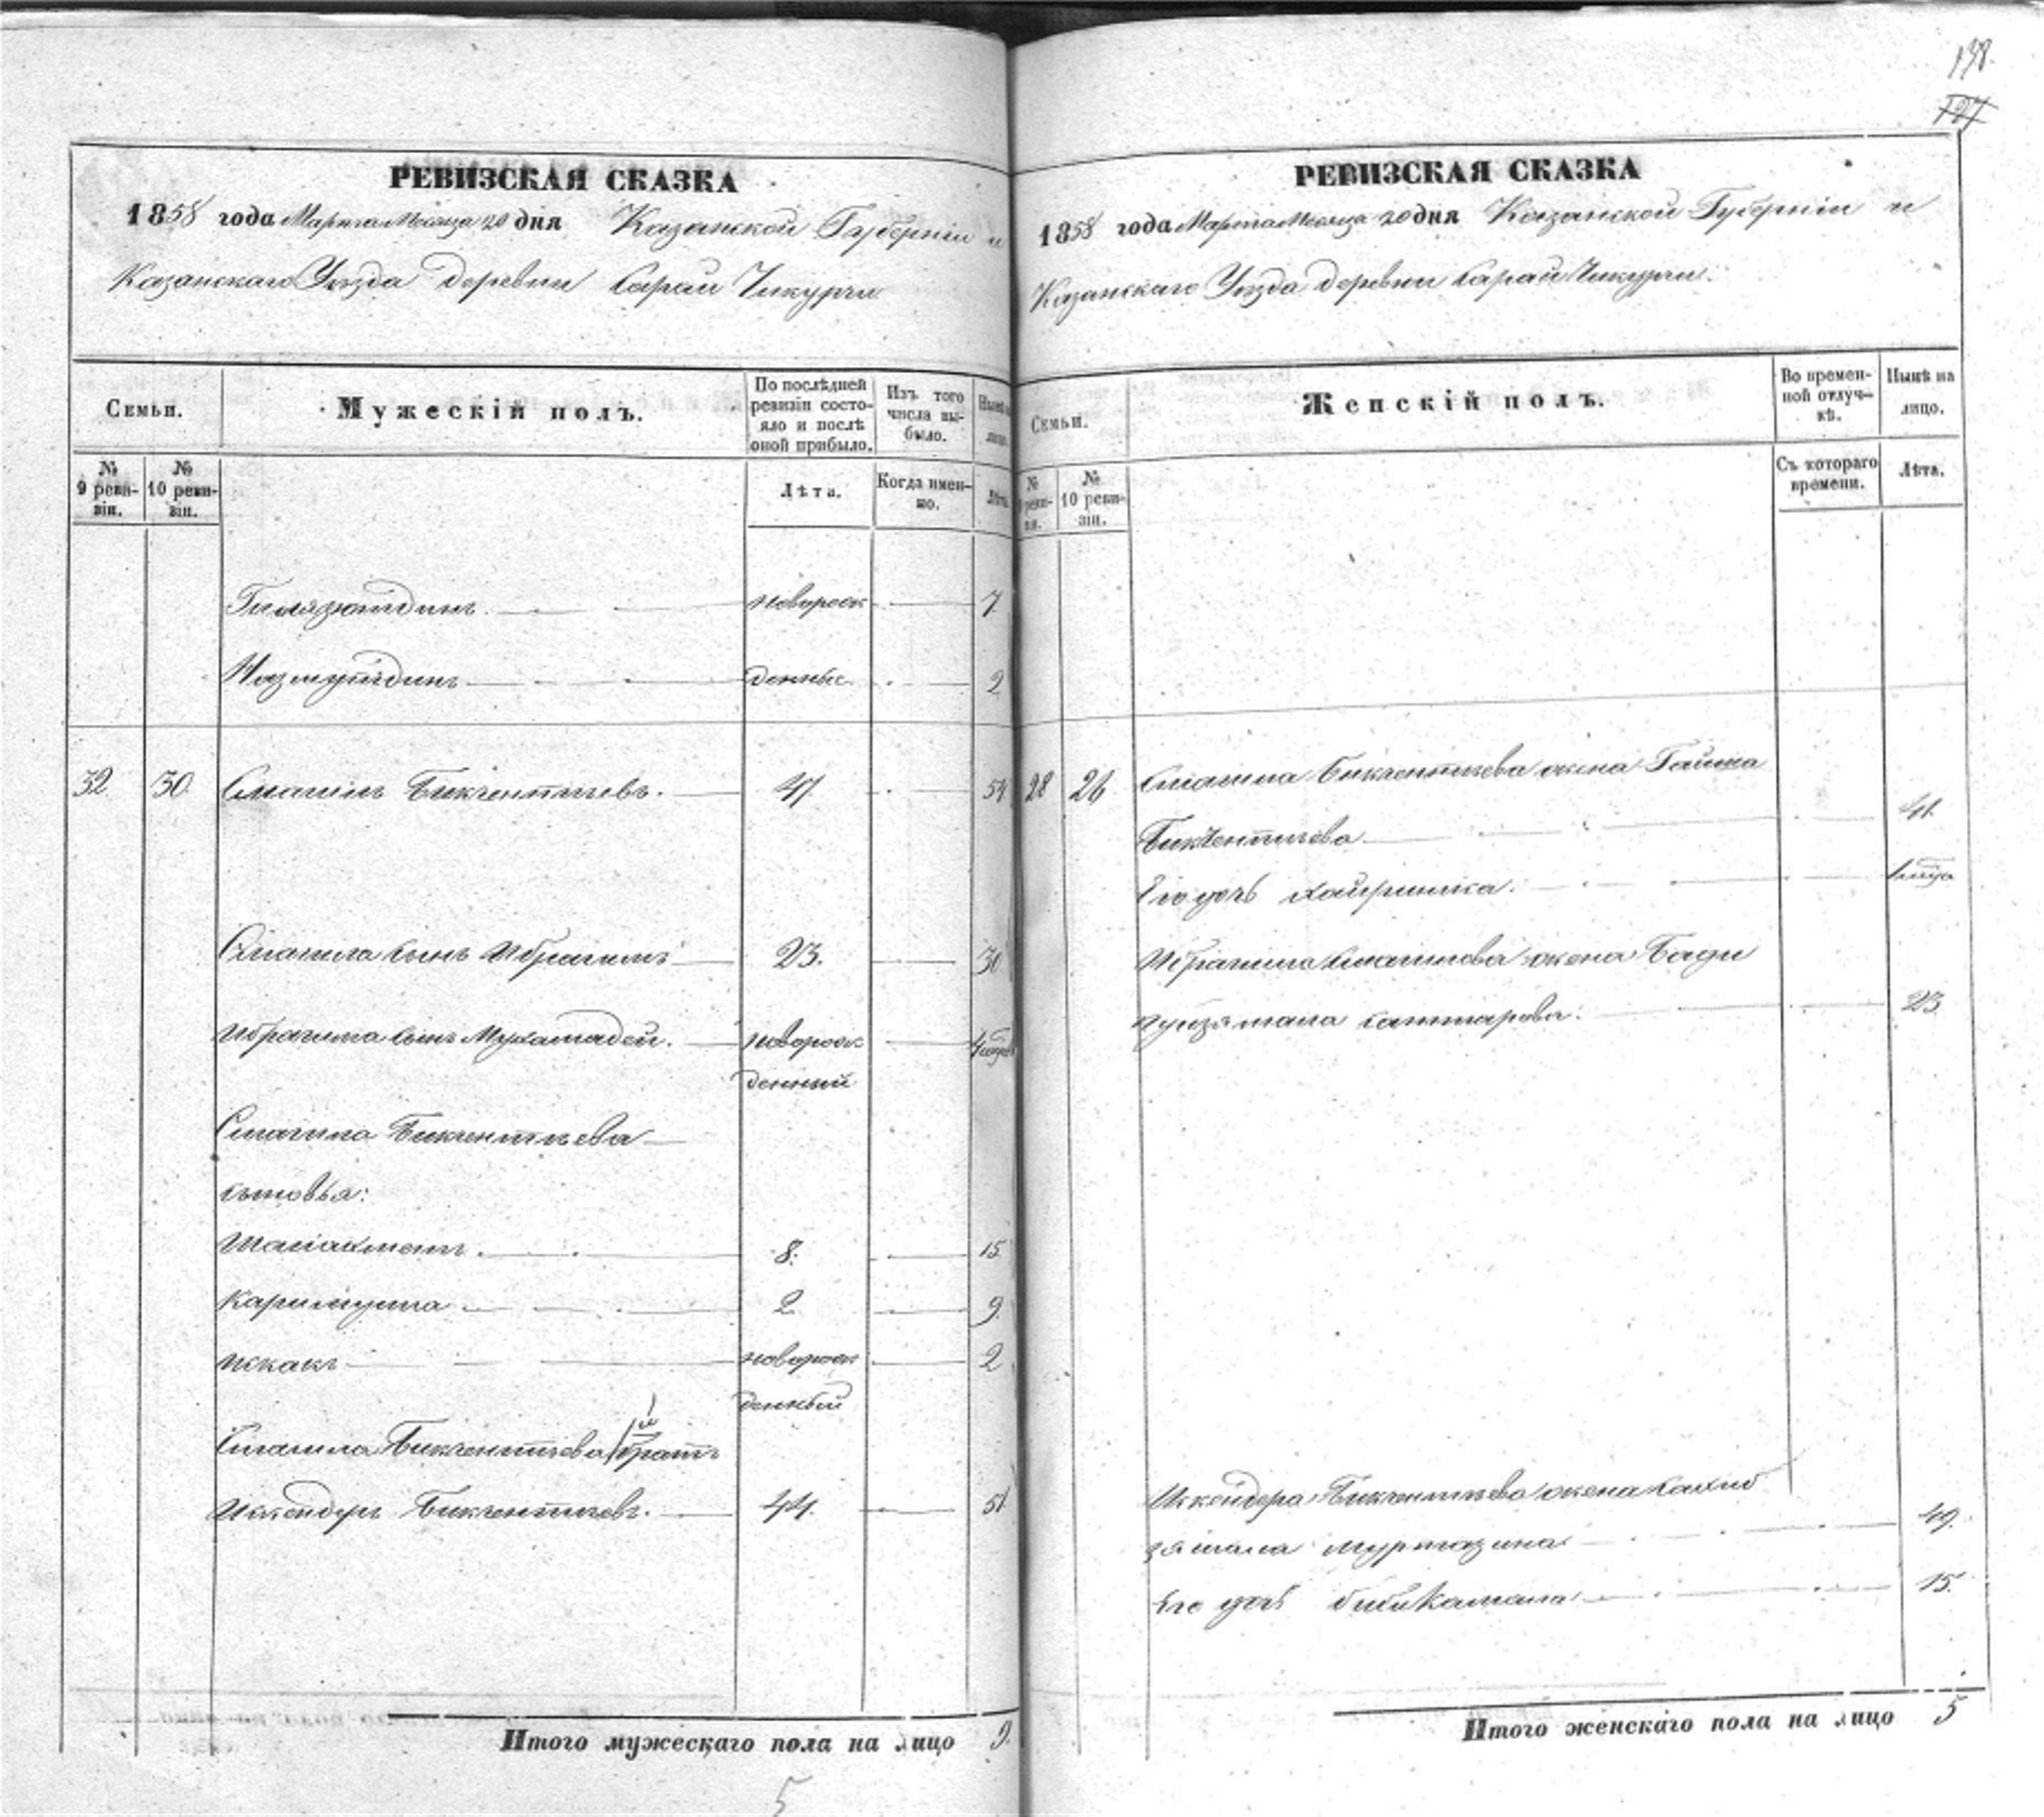 138.
127
РЕВИЗСКАЯ СКАЗКА
1858 года Марта Месяца 20 дня Казанской Губерніи и
Казанскаго Уѣзда деревни Сараи Чикурчи
Семьи.
Мужескій полъ.
По послѣдней ревизіи состояло и послѣ оной прибыло.
Изъ того числа выбыло.
Нынѣ на лицо.
№ 9 ревизіи.
№ 10 ревизіи.
Лѣта.
Когда именно.
Лѣта.
Гилязютдинъ новорож 7.
Назмутдинъ денные 2
32 30 Смагилъ Бикчентѣевъ. 47 54
Смагила сынъ Ибрагимъ 23. 30
Ибрагима сынъ Мухамадей. новорож
денный
Смагила Бикчентѣева
сыновья:
Шаиахметъ. 8. 15
Каримулла 2 9.
Искакъ новорож 2
денный
Смагила Бикчентѣева братъ
Искендеръ Бикчентѣевъ. 44. 51
Итого мужескаго пола на лицо 9.
5
РЕВИЗСКАЯ СКАЗКА
1858 года Марта Месяца 20 дня Казанской Губерніи и
Казанскаго Уѣзда деревни Сараи Чикурчи.
Семьи.
Женскій полъ.
Во временной отлучкѣ.
Нынѣ на лицо.
№ 9 ревизіи.
№ 10 ревизіи.
Съ котораго времени.
Лѣта.
28 26 Смагила Бикчентѣева жена Гайша
Бикчентѣева 41.
Его дочь
Ибрагима Смагилова жена Бади
Саттарова. 23.
Искендера Бикчентѣева жена
Муртазина 49.
Его дочь Бибикамала 15.
Итого женскаго пола на лицо 5